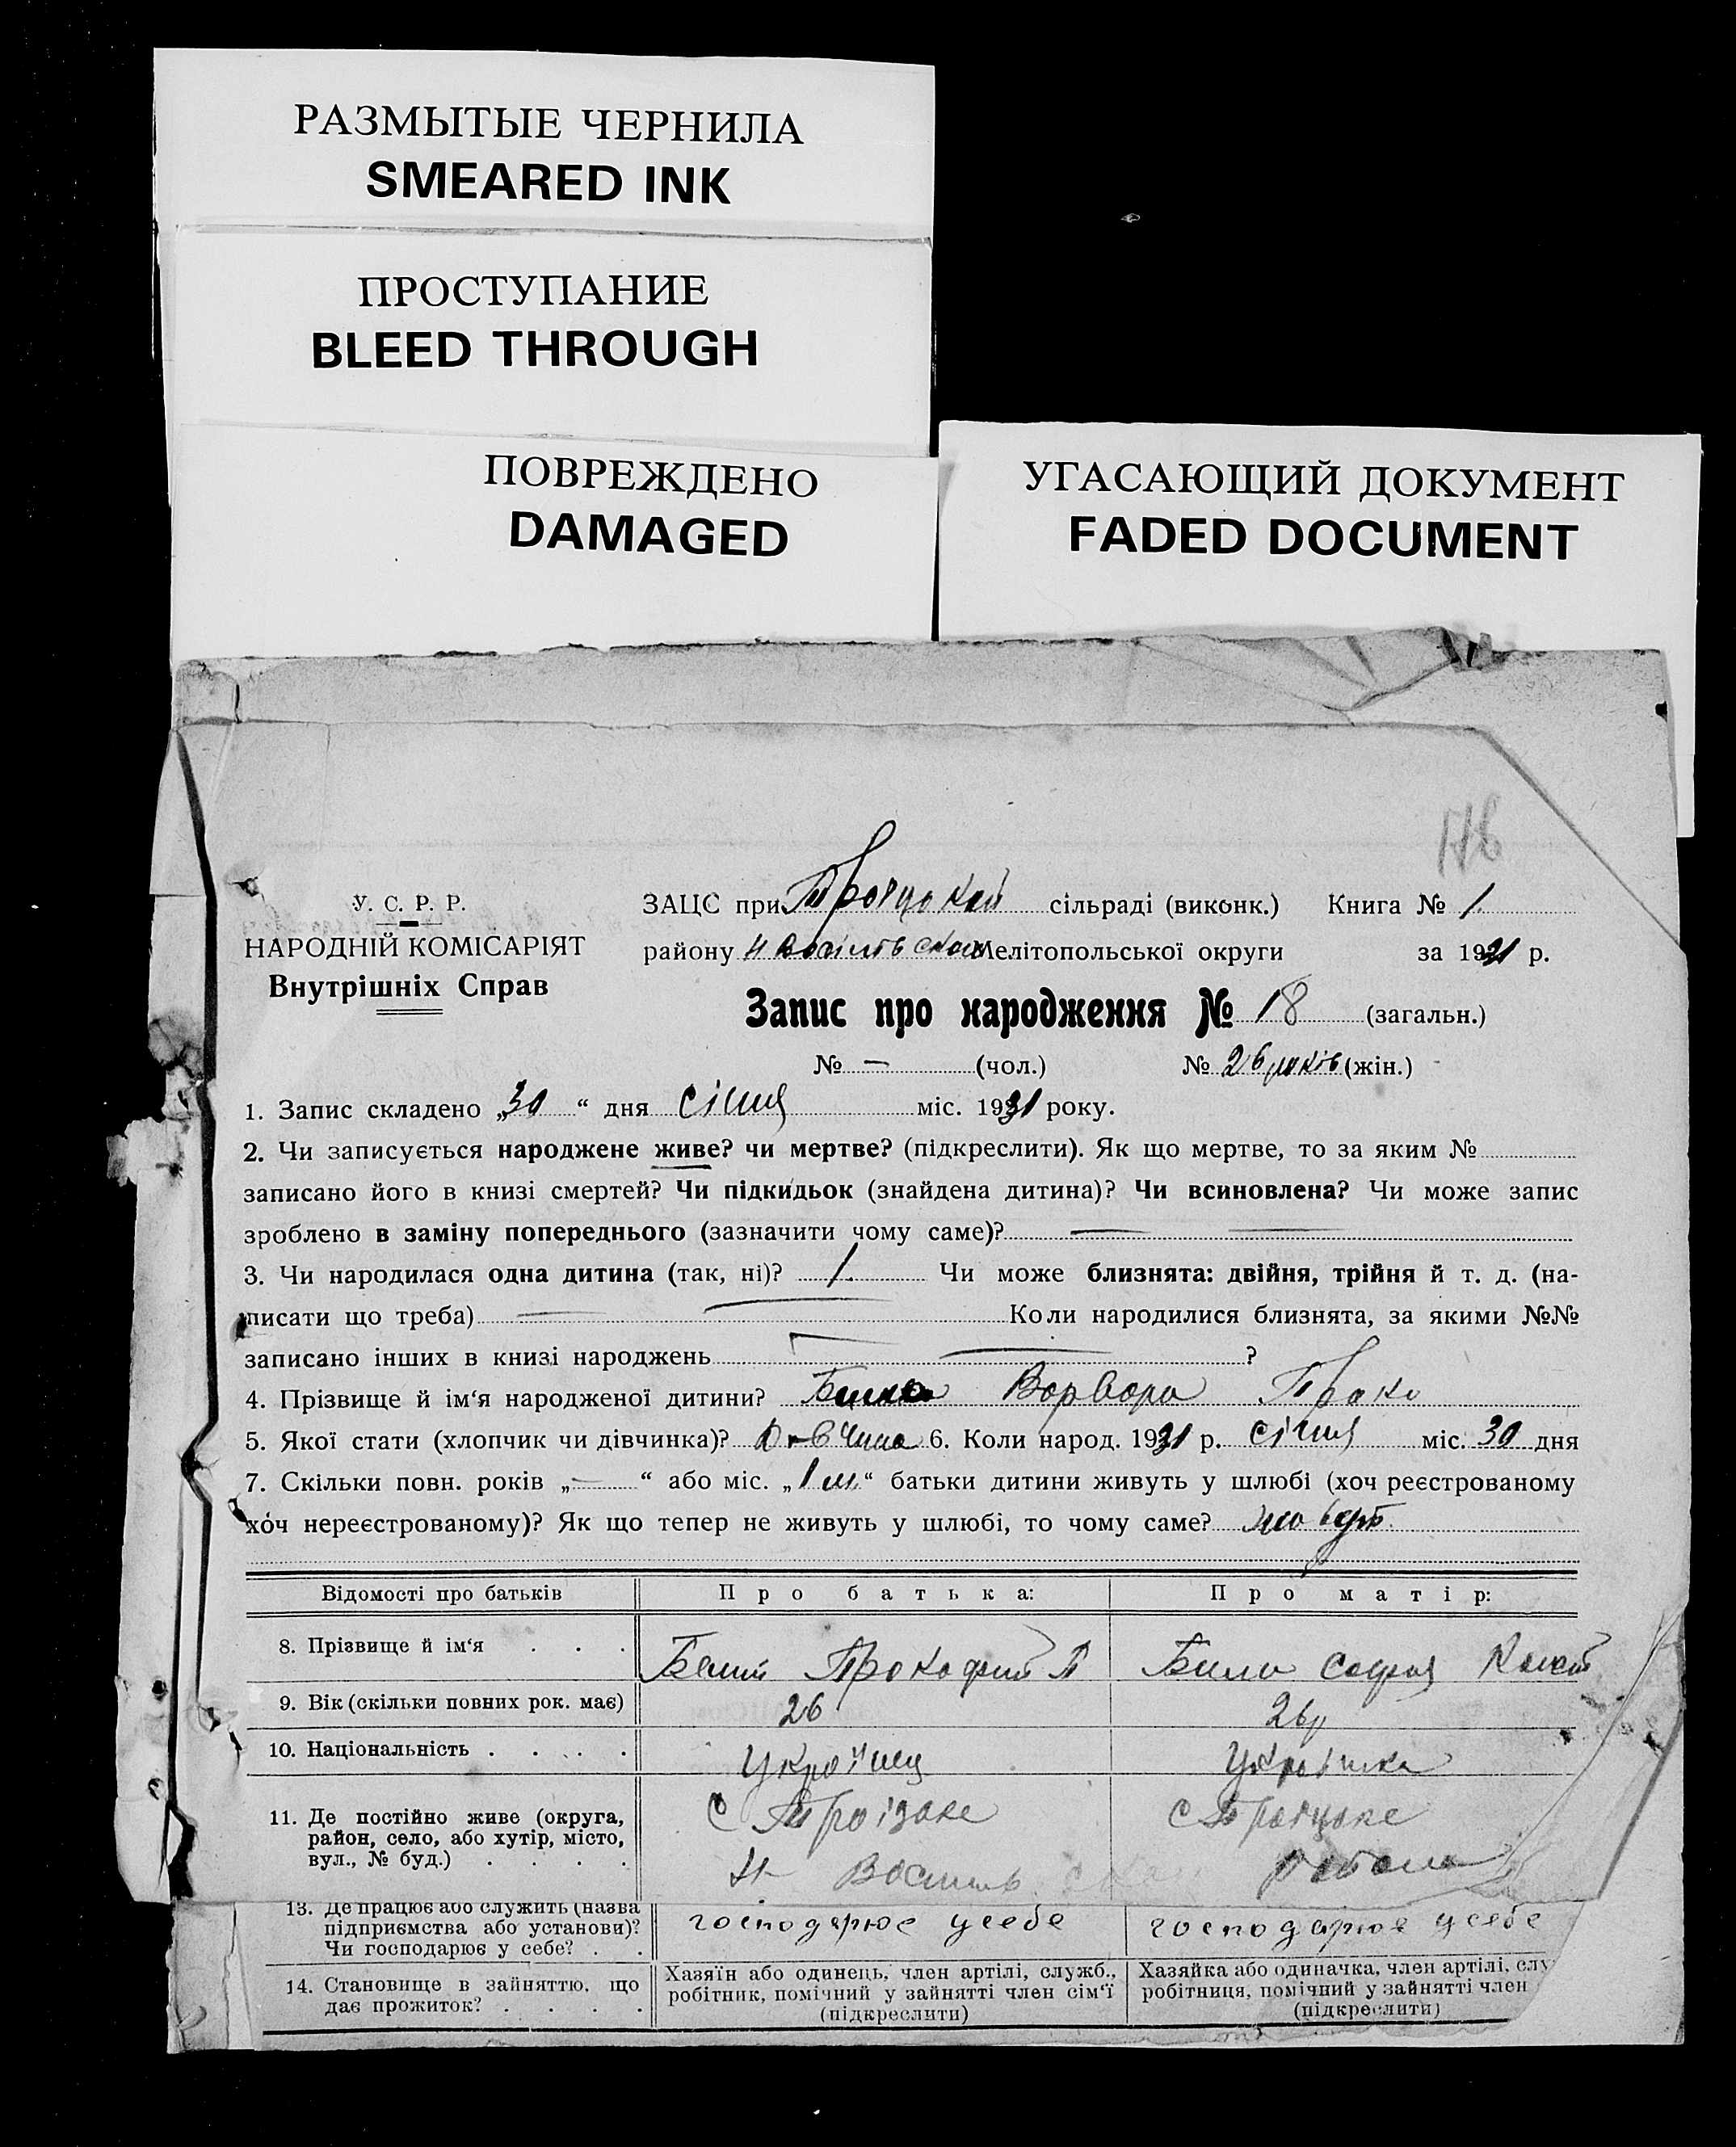 РАЗМЫТЫЕ ЧЕРНИЛА
SMEARED INK
ПРОСТУПАНИЕ
BLEED THROUGH
ПОВРЕЖДЕНО
DAMAGED
УГАСАЮЩИЙ ДОКУМЕНТ
FADED DOCUMENT
У. С. Р. Р.
НАРОДНІЙ КОМІСАРІЯТ
Внутрішніх Справ
ЗАЦС при Троіцокой сільраді (виконк.) Книга № 1.
району Мелітопольської округи за 1931 р.
Запис про народження № 18 (загальн.)
№ — (чол.) № 26 років (жін.)
1. Запис складено „30“ дня січня міс. 1931 року.
2. Чи записується народжене живе? чи мертве? (підкреслити). Як що мертве, то за яким №
записано його в книзі смертей? Чи підкидьок (знайдена дитина)? Чи всиновлена? Чи може запис
зроблено в заміну попереднього (зазначити чому саме)? —
3. Чи народилася одна дитина (так, ні)? 1. Чи може близнята: двійня, трійня й т. д. (на-
писати що треба) — Коли народилися близнята, за якими №№
записано інших в книзі народжень — ?
4. Прізвище й ім‘я народженої дитини? Ворвора Проко
5. Якої стати (хлопчик чи дівчинка)? 6. Коли народ. 1931 р. січня міс. 30 дня
7. Скільки повн. років „—“ або міс. „1 м.“ батьки дитини живуть у шлюбі (хоч реєстрованому
хоч нереєстрованому)? Як що тепер не живуть у шлюбі, то чому саме?
Відомості про батьків Про батька: Про матір:
8. Прізвище й ім‘я . . . Белий Прокофий П Била Софія Конст
9. Вік (скільки повних рок. має) 26 26р
10. Національність . . . . . Україниц Українка
11. Де постійно живе (округа, район, село, або хутір, місто, вул., № буд.) . . . . с Троізоке с Троіцоке
Н Восиль
13. Де працює або служить (назва підприємства або установи)? Чи господарює у себе? . . господарює у себе господарює у себе
14. Становище в зайняттю, що дає прожиток? . . . . Хазяїн або одинець, член артілі, служб., робітник, помічний у зайнятті член сім‘ї (підкреслити) Хазяйка або одиначка, член артілі, слу робітниця, помічний у зайнятті член (підкреслити)